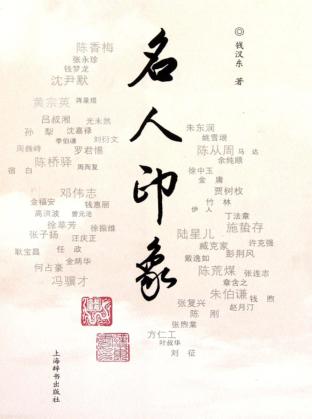 ◎ 钱汉东 著
名人印象
陈香梅
张永珍
钱梦龙
沈尹默
黄宗英 蒋星煜
吕叔湘 光未然
孙犁 沈嘉禄
李伯谦 刘衍文
周巍峙 罗君惕
陈桥驿
宿白 周而复
邓伟志
金福安 钱惠丽
高洪波 曾元沧
徐莘芳 徐振维
张子扬 汪庆正
耿宝昌 任政
何占豪 金炳华
冯骥才
朱东润
姚雪垠
陈从周 马达
余纯顺
徐中玉
金庸
贾树枚
竹林
伊人
丁法章
施蛰存
陆星儿
许克强
臧克家
彭荆风
戴逸如
陈荒煤 张连志
章含之
朱伯谦 钱煦
张复兴 赵月汀
陈刚
张煦棠
方仁工
叶叔华
刘征
上海辞书出版社